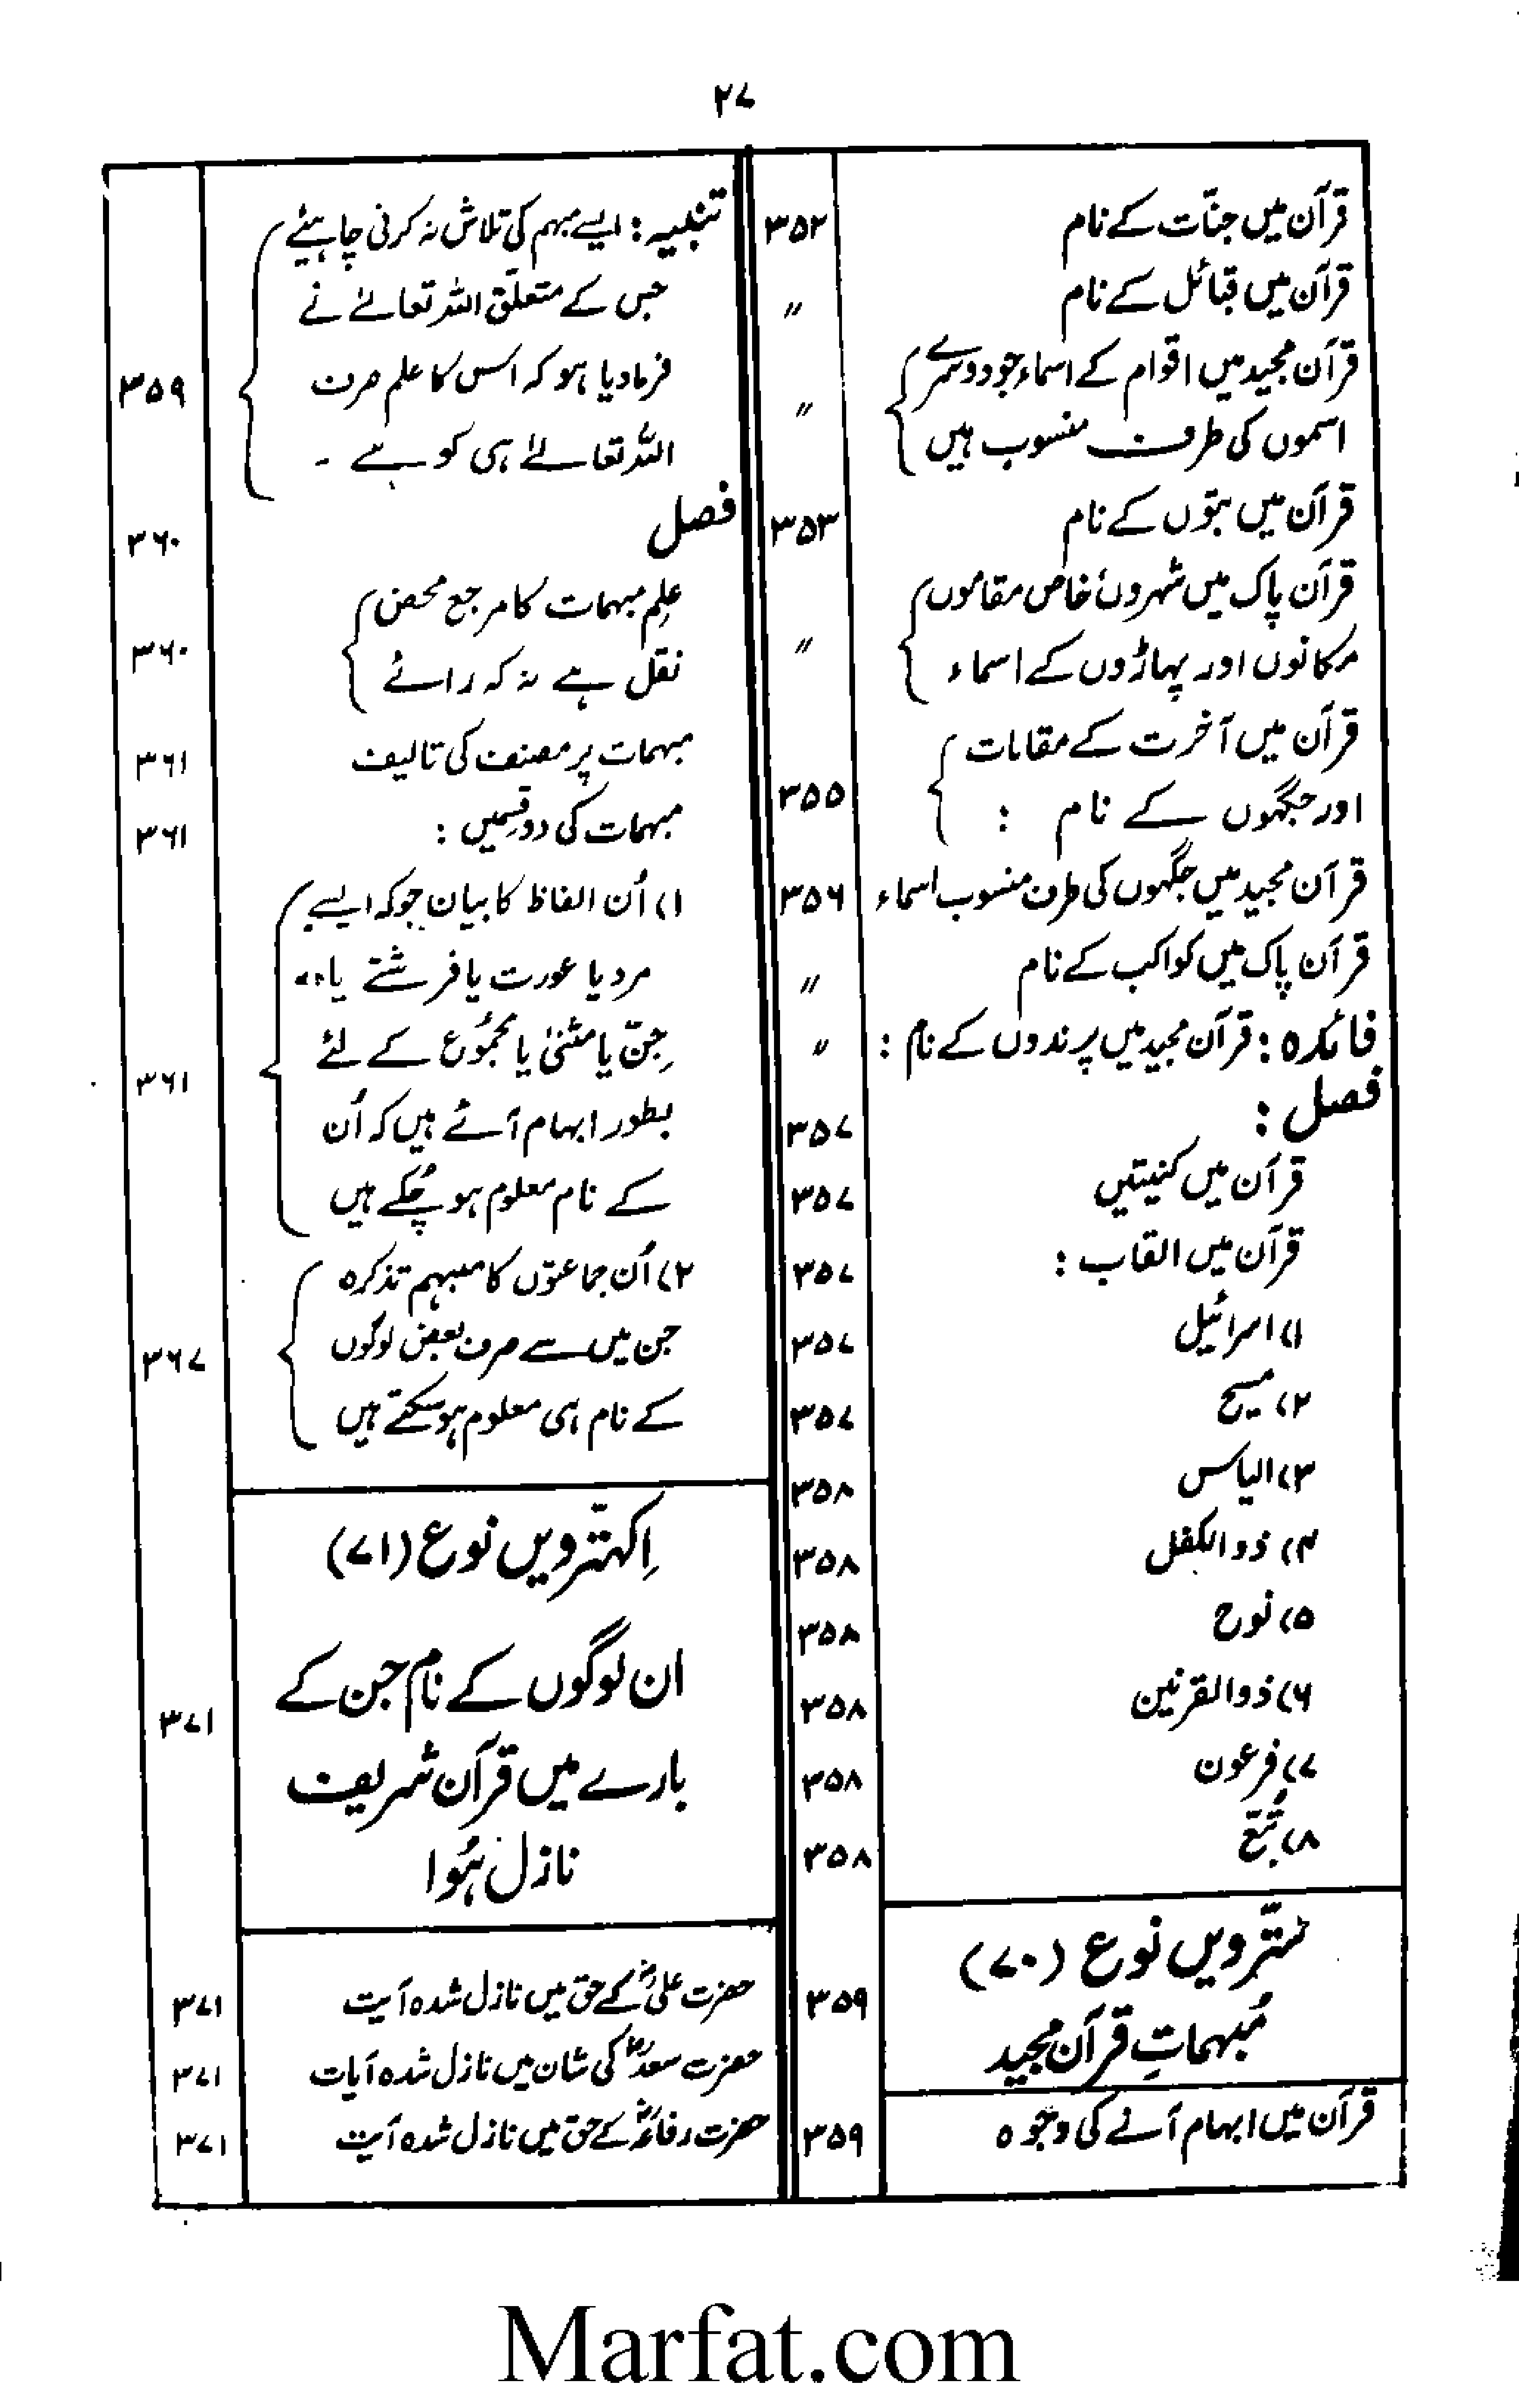 ۲۷
قرآن میں جنّات کے نام ۳۵۲
قرآن میں قبائل کے نام 〃
قرآن مجید میں اقوام کے اسماء جو دوسرے
اسموں کی طرف منسوب ہیں 〃
قرآن میں بتوں کے نام ۳۵۳
قرآن پاک میں شہروں خاص مقاموں
مکانوں اور پہاڑوں کے اسماء 〃
قرآن میں آخرت کے مقامات
اور جگہوں کے نام : ۳۵۵
قرآن مجید میں جگہوں کی طرف منسوب اسماء ۳۵۶
قرآن پاک میں کواکب کے نام 〃
فائدہ : قرآن مجید میں پرندوں کے نام : 〃
فصل : ۳۵۷
قرآن میں کنیتیں ۳۵۷
قرآن میں القاب : ۳۵۷
۱) اسرائیل ۳۵۷
۲) مسیح ۳۵۷
۳) الیاس ۳۵۸
۴) ذوالکفل ۳۵۸
۵) نوح ۳۵۸
۶) ذوالقرنین ۳۵۸
۷) فرعون ۳۵۸
۸) تُبّع ۳۵۸
ستّرویں نوع (۷۰)
مُبہماتِ قرآن مجید ۳۵۹
قرآن میں ابہام آنے کی وجوہ ۳۵۹
تنبیہ : ایسے مبہم کی تلاش نہ کرنی چاہیئے
جس کے متعلّق اللہ تعالےٰ نے
فرمادیا ہو کہ اس کا علم صرف
اللہ تعالےٰ ہی کو ہے - ۳۵۹
فصل ۳۶۰
علِم مبہمات کا مرجع محض
نقل ہے نہ کہ رائے ۳۶۰
مبہمات پر مصنف کی تالیف ۳۶۱
مبہمات کی دو قسمیں : ۳۶۱
۱) اُن الفاظ کا بیان جو کہ ایسے
مرد یا عورت یا فرشتے یا
جِنّ یا مثنیٰ یا مجمُوع کے لئے
بطور ابہام آئے ہیں کہ اُن
کے نام معلوم ہو چُکے ہیں ۳۶۱
۲) اُن جماعتوں کا مبہم تذکرہ
جن میں سے صرف بعض لوگوں
کے نام ہی معلوم ہو سکتے ہیں ۳۶۷
اِکہتّرویں نوع (۷۱)
ان لوگوں کے نام جن کے
بارے میں قرآن شریف
نازل ہُوا ۳۷۱
حضرت علیؓ کے حق میں نازل شدہ آیت ۳۷۱
حضرت سعدؓ کی شان میں نازل شدہ آیات ۳۷۱
حضرت رفاعہؓ کے حق میں نازل شدہ آیت ۳۷۱
Marfat.com